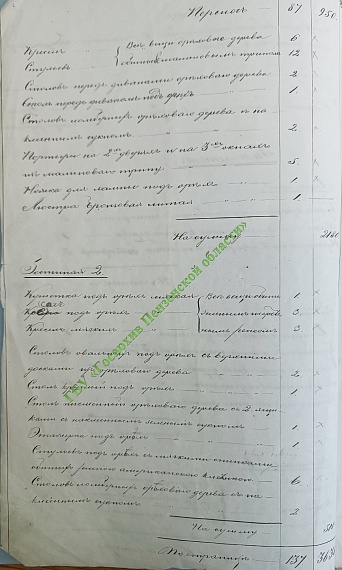 Переносъ 87 950
Креселъ Всѣ вещи орѣховаго дерева 6
Стульевъ обитые малиновымъ трипомъ 12
Столовъ передъ диванами орѣховаго дерева 2
Столъ передъ диваномъ подъ орѣхъ 1
Столовъ ломберныхъ орѣховаго дерева съ на
клееннымъ сукномъ 2
Портьеры на 2хъ дверяхъ и на 3хъ окнахъ
изъ малиноваго трипу 5
Ножка для лампы подъ орѣхъ 1
Люстра бронзовая литая 1
На сумму 2180
Гостиная 2.
Кушетка подъ орѣхъ мягкая Всѣ вещи обиты 1
подъ орѣхъ 3
Креселъ мягкихъ нымъ репсомъ 3
Столовъ овальныхъ подъ орѣхъ съ
досками орѣховаго дерева 2
Столъ круглый подъ орѣхъ 1
Столъ письменный орѣховаго дерева съ 2 ящи
ками съ наклееннымъ зеленымъ сукномъ 1
Этажерка подъ орѣхъ 1
Стульевъ подъ орѣхъ съ мягкими спинками
обитыхъ американскою клеенкою 6
Столовъ ломберныхъ орѣховаго дерева съ на
клееннымъ сукномъ 2
На сумму
По страницѣ 137
ГБУ «Госархив Пензенской области»